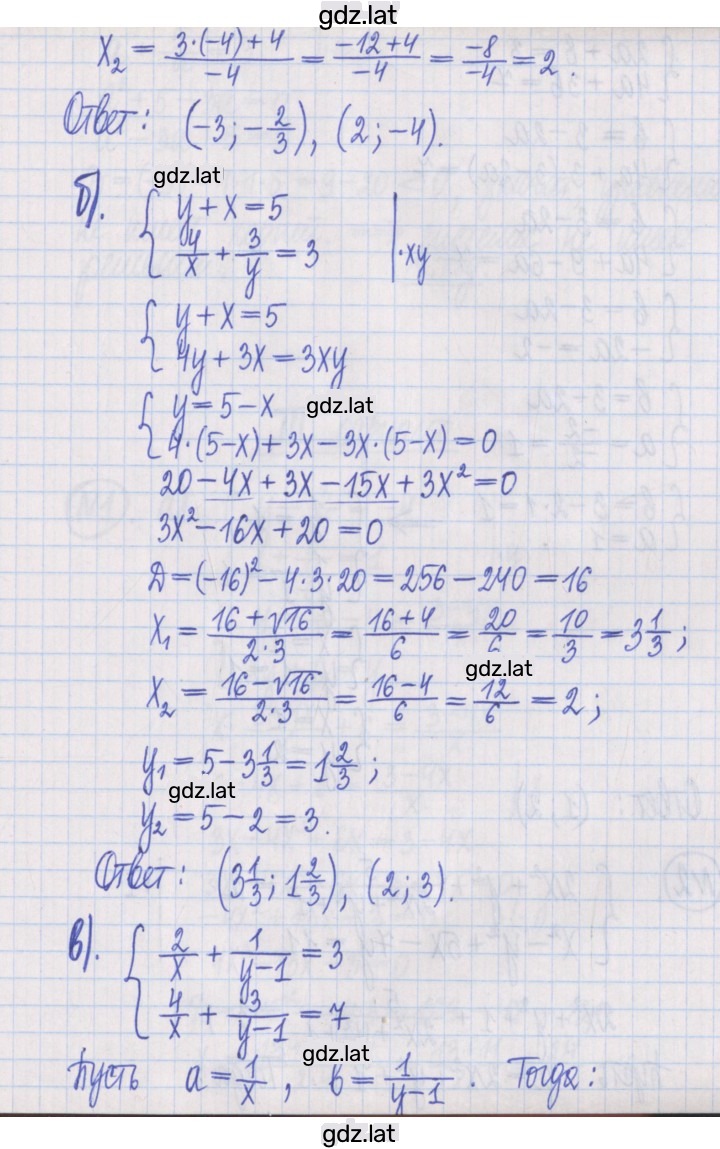 gdz.lat
x₂ = (3·(-4)+4)/(-4) = (-12+4)/(-4) = (-8)/(-4) = 2.
Ответ: (-3; -2/3), (2; -4).
gdz.lat
б). { y + x = 5
4/x + 3/y = 3 | ·xy
{ y + x = 5
4y + 3x = 3xy
{ y = 5 - x gdz.lat
4·(5-x) + 3x - 3x·(5-x) = 0
20 - 4x + 3x - 15x + 3x² = 0
3x² - 16x + 20 = 0
Д = (-16)² - 4·3·20 = 256 - 240 = 16
x₁ = (16+√16)/(2·3) = (16+4)/6 = 20/6 = 10/3 = 3 1/3;
gdz.lat
x₂ = (16-√16)/(2·3) = (16-4)/6 = 12/6 = 2;
y₁ = 5 - 3 1/3 = 1 2/3;
gdz.lat
y₂ = 5 - 2 = 3.
Ответ: (3 1/3; 1 2/3), (2; 3).
в). { 2/x + 1/(y-1) = 3
4/x + 3/(y-1) = 7
gdz.lat
Пусть a = 1/x, в = 1/(y-1). Тогда:
gdz.lat